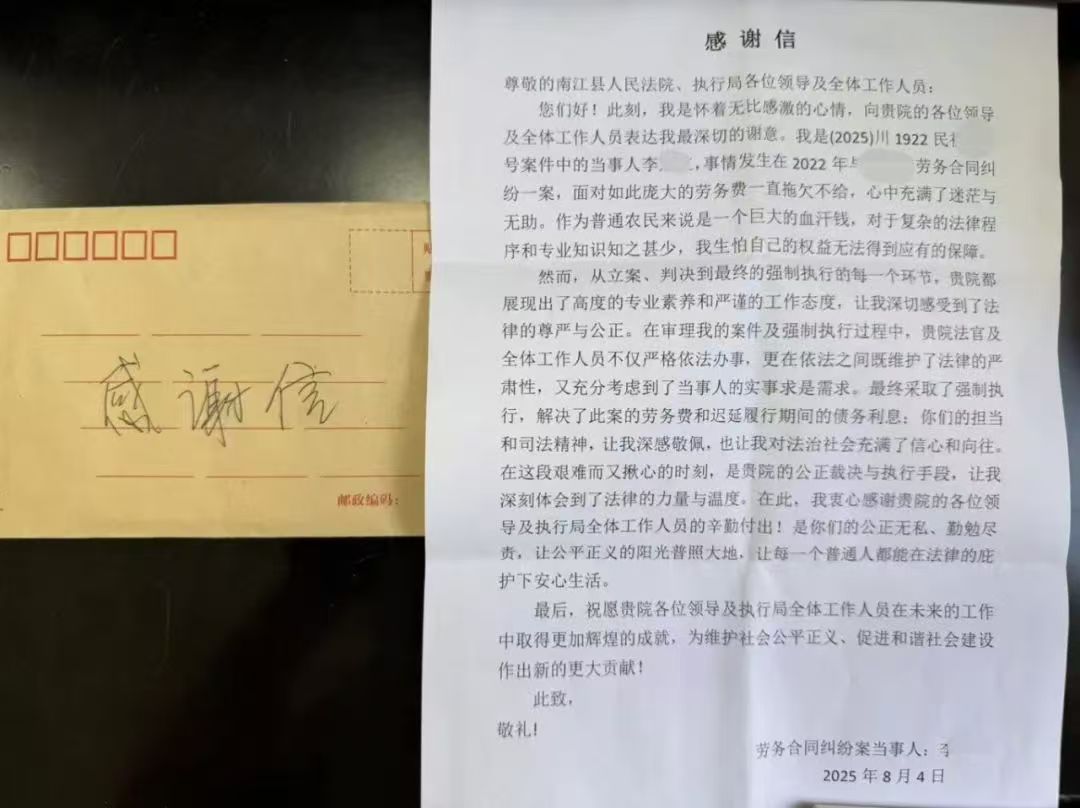 感谢信
邮政编码：
感谢信
尊敬的南江县人民法院、执行局各位领导及全体工作人员：
您们好！此刻，我是怀着无比感激的心情，向贵院的各位领导
及全体工作人员表达我最深切的谢意。我是(2025)川 1922 民
号案件中的当事人李，事情发生在 2022 年与劳务合同纠
纷一案，面对如此庞大的劳务费一直拖欠不给，心中充满了迷茫与
无助。作为普通农民来说是一个巨大的血汗钱，对于复杂的法律程
序和专业知识知之甚少，我生怕自己的权益无法得到应有的保障。
然而，从立案、判决到最终的强制执行的每一个环节，贵院都
展现出了高度的专业素养和严谨的工作态度，让我深切感受到了法
律的尊严与公正。在审理我的案件及强制执行过程中，贵院法官及
全体工作人员不仅严格依法办事，更在依法之间既维护了法律的严
肃性，又充分考虑到了当事人的实事求是需求。最终采取了强制执
行，解决了此案的劳务费和迟延履行期间的债务利息；你们的担当
和司法精神，让我深感敬佩，也让我对法治社会充满了信心和向往。
在这段艰难而又揪心的时刻，是贵院的公正裁决与执行手段，让我
深刻体会到了法律的力量与温度。在此，我衷心感谢贵院的各位领
导及执行局全体工作人员的辛勤付出！是你们的公正无私、勤勉尽
责，让公平正义的阳光普照大地，让每一个普通人都能在法律的庇
护下安心生活。
最后，祝愿贵院各位领导及执行局全体工作人员在未来的工作
中取得更加辉煌的成就，为维护社会公平正义、促进和谐社会建设
作出新的更大贡献！
此致，
敬礼！
劳务合同纠纷案当事人：李
2025 年 8 月 4 日